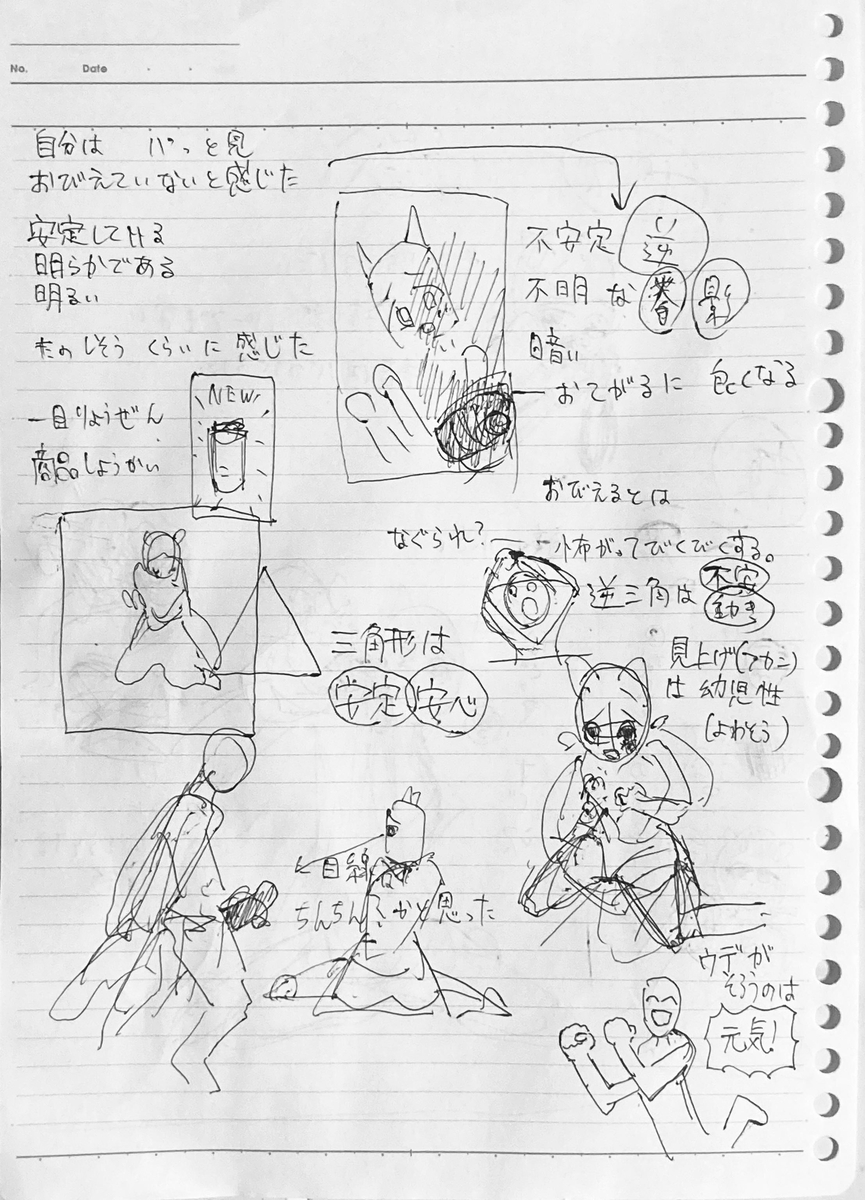 No.
Date
自分は パっと見
おびえていないと感じた
安定してける
明らかである
明るい
たのしそう くらいに 感じた
一目りょうぜん
商品しょうかい
NEW
不安定
逆
不明な
影
暗い
おてがるに 良くなる
おびえるとは
なぐられ?
怖がってびくびくする。
逆三角は
不安
動き
三角形は
安定
安心
見上げ(アカニ)
は 幼児性
(よわそう)
目線
ちんちん!かと思った
ウデが
そろうのは
元気!